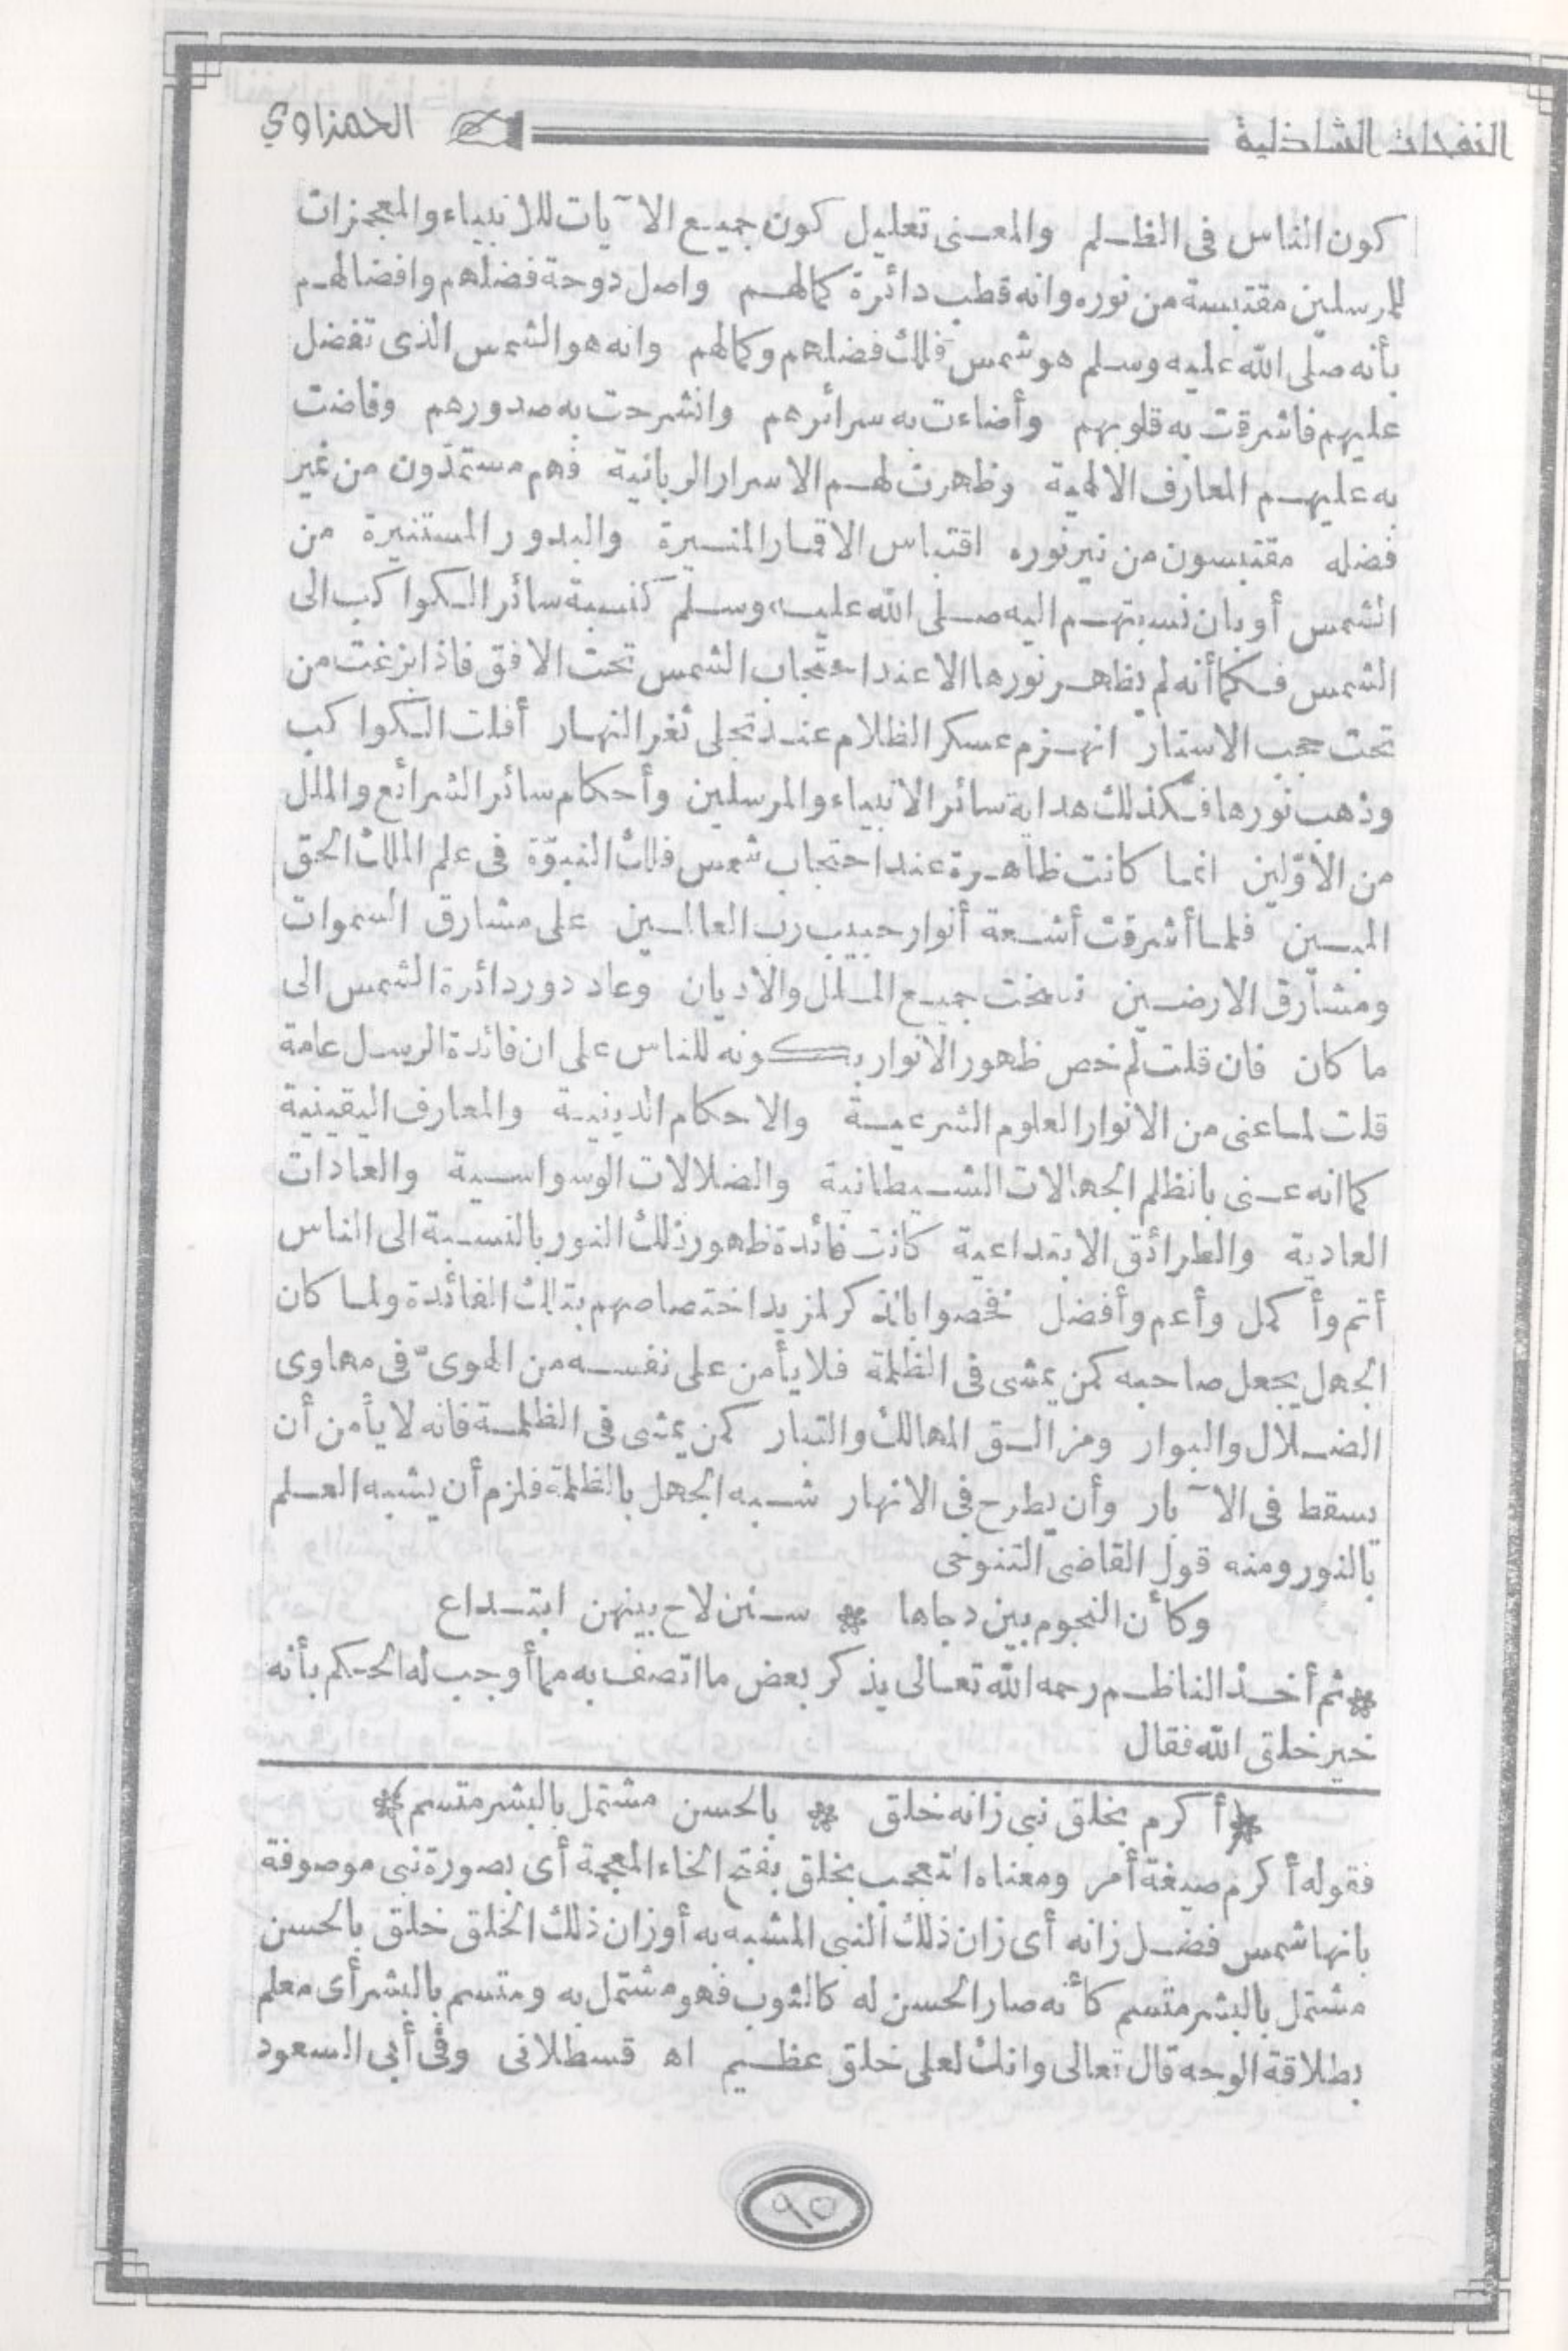 النفحات الشاذلية الحمزاوي
كون الناس فى الظلم والمعنى تعليل كون جميع الآيات للانبياء والمعجزات
للمرسلين مقتبسة من نوره وانه قطب دائرة كمالهم واصل دوحة فضلهم وافضالهم
بأنه صلى الله عليه وسلم هو شمس فلك فضلهم وكمالهم وانه هو الشمس الذى تفضل
عليهم فاشرقت به قلوبهم وأضاءت به سرائرهم وانشرحت به صدورهم وفاضت
به عليهم المعارف الالهية وظهرت لهم الاسرار الربانية فهم مستمدّون من غير
فضله مقتبسون من نير نوره اقتباس الاقمار المنيرة والبدور المستنيرة من
الشمس أو بان نسبتهم اليه صلى الله عليه وسلم كنسبة سائر الكواكب الى
الشمس فكما أنه لم يظهر نورها الا عند احتجاب الشمس تحت الافق فاذا بزغت من
تحت حجب الاستار انهزم عسكر الظلام عند تجلى ثغر النهار أفلت الكواكب
وذهب نورها فكذلك هداية سائر الانبياء والمرسلين وأحكام سائر الشرائع والملل
من الاوّلين انما كانت ظاهرة عند احتجاب شمس فلك النبوّة فى علم الملك الحق
المبين فلما أشرقت أشعة أنوار حبيب رب العالمين على مشارق السموات
ومشارق الارضين نسخت جميع الملل والاديان وعاد دور دائرة الشمس الى
ما كان فان قلت لم خص ظهور الانوار بكونه للناس على ان فائدة الرسل عامة
قلت لما عنى من الانوار العلوم الشرعية والاحكام الدينية والمعارف اليقينية
كما انه عنى بالظلم الجهالات الشيطانية والضلالات الوسواسية والعادات
العادية والطرائق الابتداعية كانت فائدة ظهور ذلك النور بالنسبة الى الناس
أتم وأكمل وأعم وأفضل فخصوا بالذكر لمزيد اختصاصهم بتلك الفائدة ولما كان
الجهل يجعل صاحبه كمن يمشى فى الظلمة فلا يأمن على نفسه من الهوىّ فى مهاوى
الضلال والبوار ومزالق المهالك والتبار كمن يمشى فى الظلمة فانه لا يأمن أن
يسقط فى الآبار وأن يطرح فى الانهار شبه الجهل بالظلمة فلزم أن يشبه العلم
بالنور ومنه قول القاضى التنوخى
وكأن النجوم بين دجاها * سنن لاح بينهن ابتداع
* ثم أخذ الناظم رحمه الله تعالى يذكر بعض ما اتصف به مما أوجب له الحكم بأنه
خير خلق الله فقال
(* أكرم بخلق نبى زانه خلق * بالحسن مشتمل بالبشر متسم *)
فقوله أكرم صيغة أمر ومعناه التعجب بخلق بفتح الخاء المعجمة أى بصورة نبى موصوفة
بانها شمس فضل زانه أى زان ذلك النبى المشبه به أو زان ذلك الخلق خلق بالحسن
مشتمل بالبشر متسم كأنه صار الحسن له كالثوب فهو مشتمل به ومتسم بالبشر أى معلم
بطلاقة الوجه قال تعالى وانك لعلى خلق عظيم اه قسطلانى وفى أبى السعود
٩٥